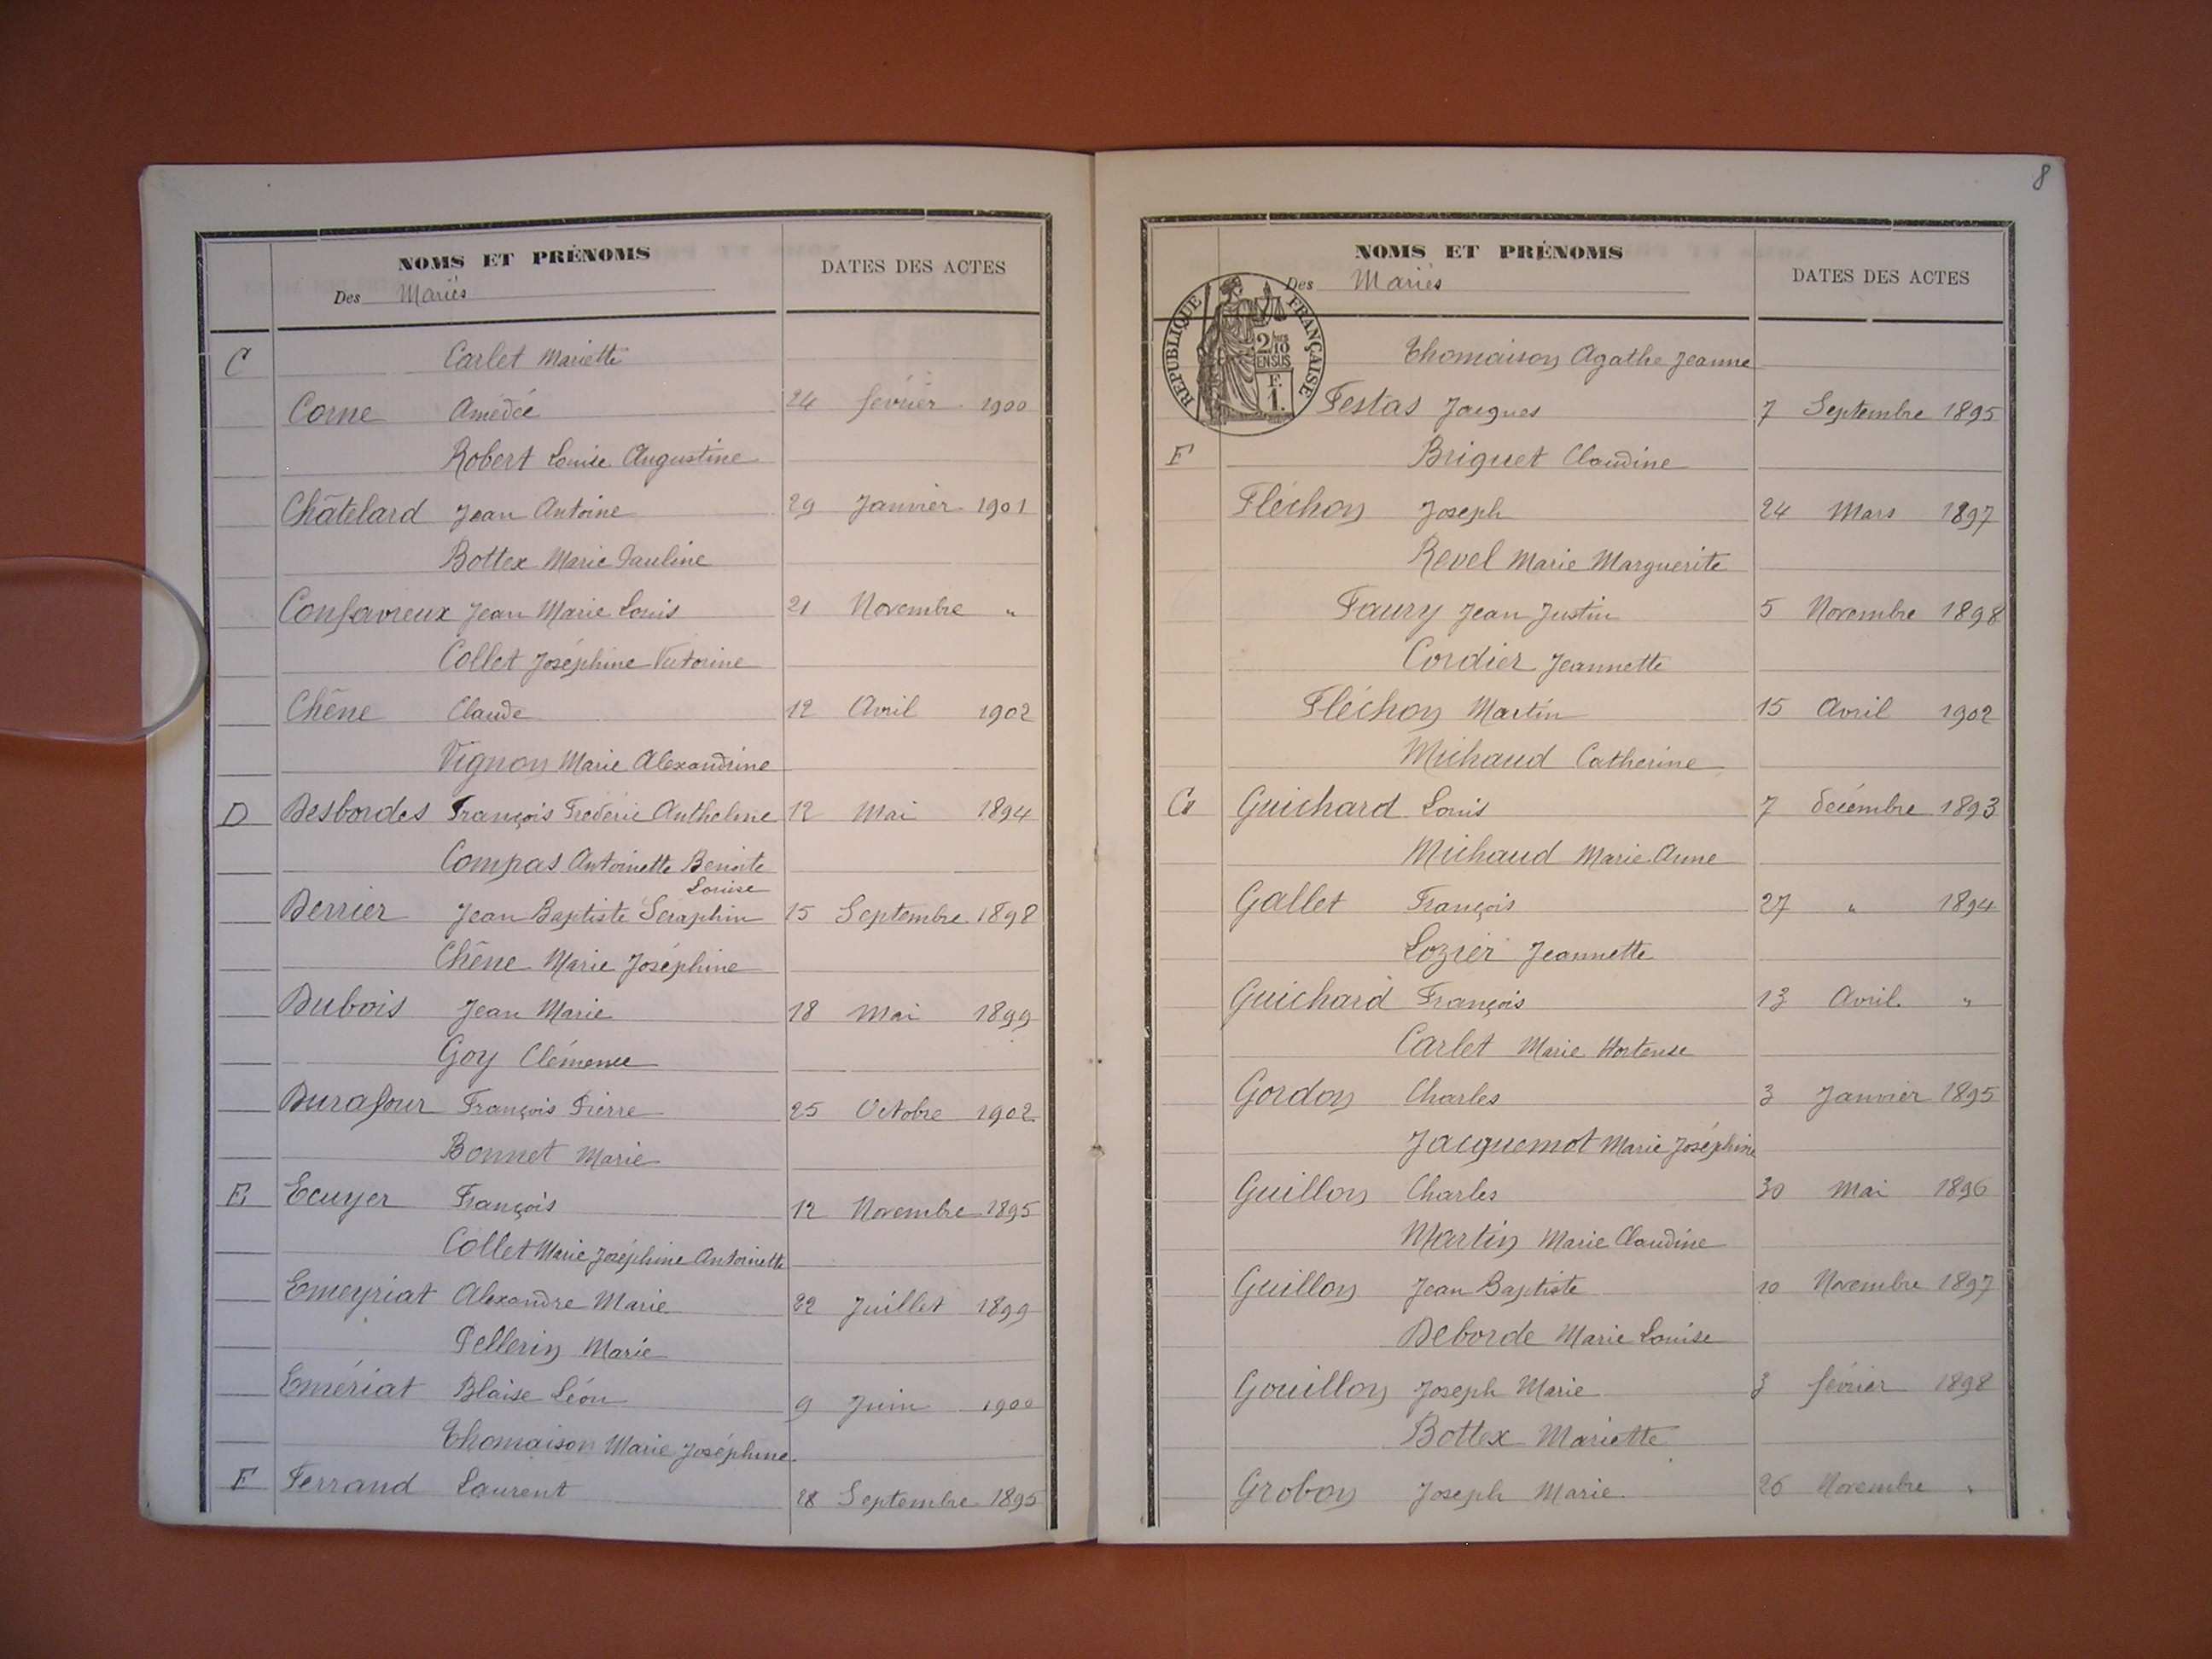 NOMS ET PRÉNOMS
Des Mariés
DATES DES ACTES
C Carlet Mariette
Corne Amédée 24 février 1900
Robert Louise Augustine
Châtelard Jean Antoine 29 Janvier 1901
Bottex Marie Pauline
Confavreux Jean Marie Louis 21 Novembre "
Collet Joséphine Victorine
Chêne Claude 12 Avril 1902
Vignon Marie Alexandrine
D Desbordes François Frédéric Anthelme 12 Mai 1894
Compas Antoinette Benoite
Louise
Derrier Jean Baptiste Séraphin 15 Septembre 1898
Chêne Marie Joséphine
Dubois Jean Marie 18 Mai 1899
Goy Clémence
Durafour François Pierre 25 Octobre 1902
Bonnet Marie
E Ecuyer François 12 Novembre 1895
Collet Marie Joséphine Antoinette
Emeyriat Alexandre Marie 22 Juillet 1899
Pellerin Marie
Emériat Blaise Léon 9 Juin 1900
Thomaison Marie Joséphine
F Ferrand Laurent 28 Septembre 1895
8
NOMS ET PRÉNOMS
Des Mariés
DATES DES ACTES
REPUBLIQUE FRANÇAISE
2/10 EN SUS
F. 1.
Thomaison Agathe Jeanne
Festas Jacques 7 Septembre 1895
F Briguet Claudine
Fléchon Joseph 24 Mars 1897
Revel Marie Marguerite
Faury Jean Justin 5 Novembre 1898
Cordier Jeannette
Fléchon Martin 15 Avril 1902
Michaud Catherine
G Guichard Louis 7 décembre 1893
Michaud Marie Anne
Gallet François 27 " 1894
Lozier Jeannette
Guichard François 13 Avril "
Carlet Marie Hortense
Gordon Charles 3 Janvier 1895
Jacquemot Marie Joséphine
Guillon Charles 30 Mai 1896
Martin Marie Claudine
Guillon Jean Baptiste 10 Novembre 1897
Deborde Marie Louise
Gouillon Joseph Marie 3 février 1898
Bottex Mariette
Grobon Joseph Marie 26 Novembre "